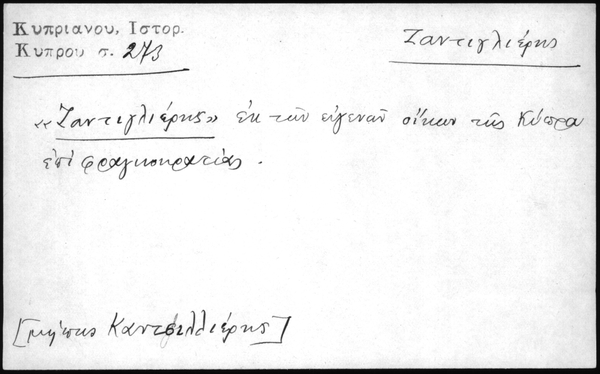 Κυπριανου, Ιστορ.
Κυπρου σ. 273
Ζαντιγλιέρης
«Ζαντιγλιέρης» ἐκ τῶν εὐγενῶν οἴκων τῆς Κύπρου
ἐπὶ φραγκοκρατίας.
[μήπως Καντσιλλιέρης]